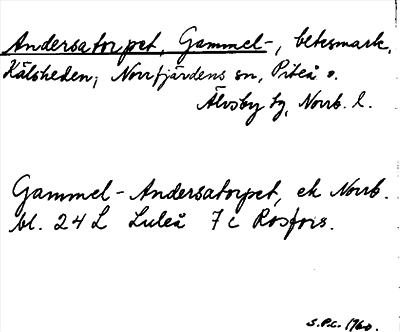 Andersatorpet, Gammel-, betesmark,
Kälsheden, Norrfjärdens sn, Piteå o.
Älvsby tg, Norrb. l.
Gammel-Andersatorpet, ek Norrb.
bl. 24 L Luleå 7 c Rosfors.
S.P.C. 1960.